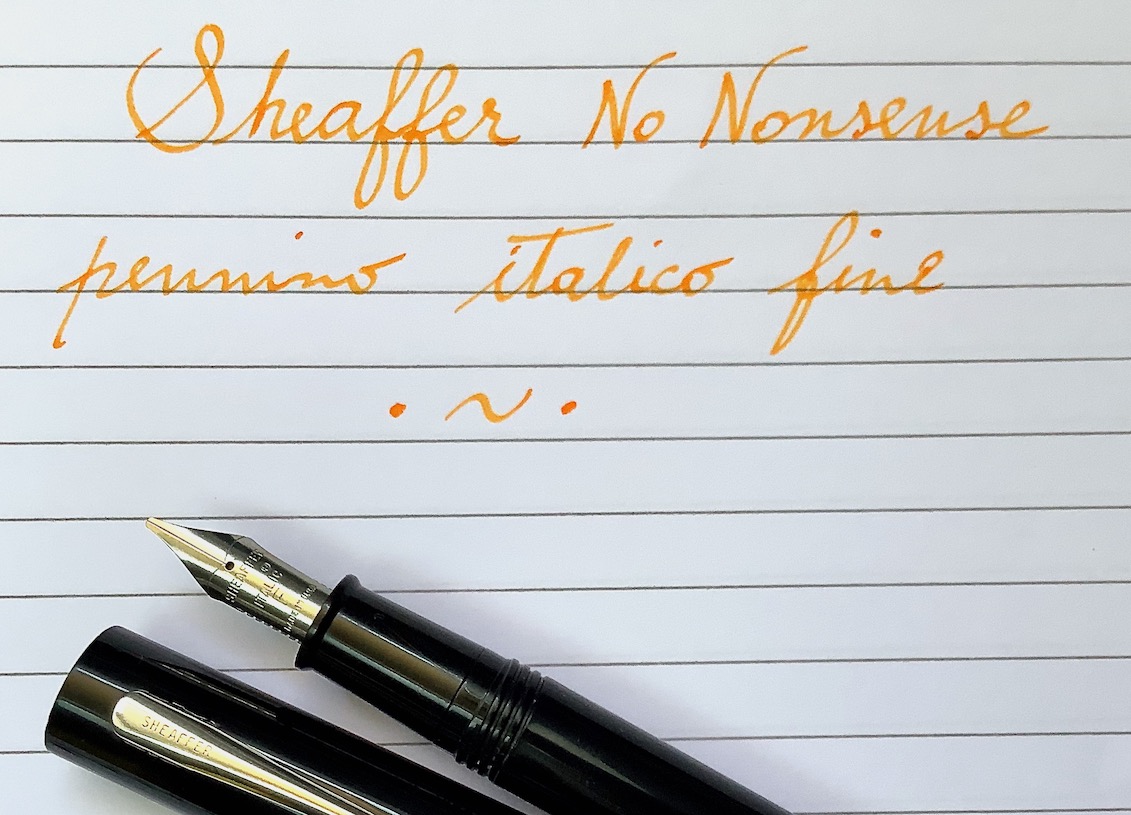 Sheaffer No Nonsense
pennino italico fine
. ~ .
SHEAFFER
ITALIC
F
SHEAFFER